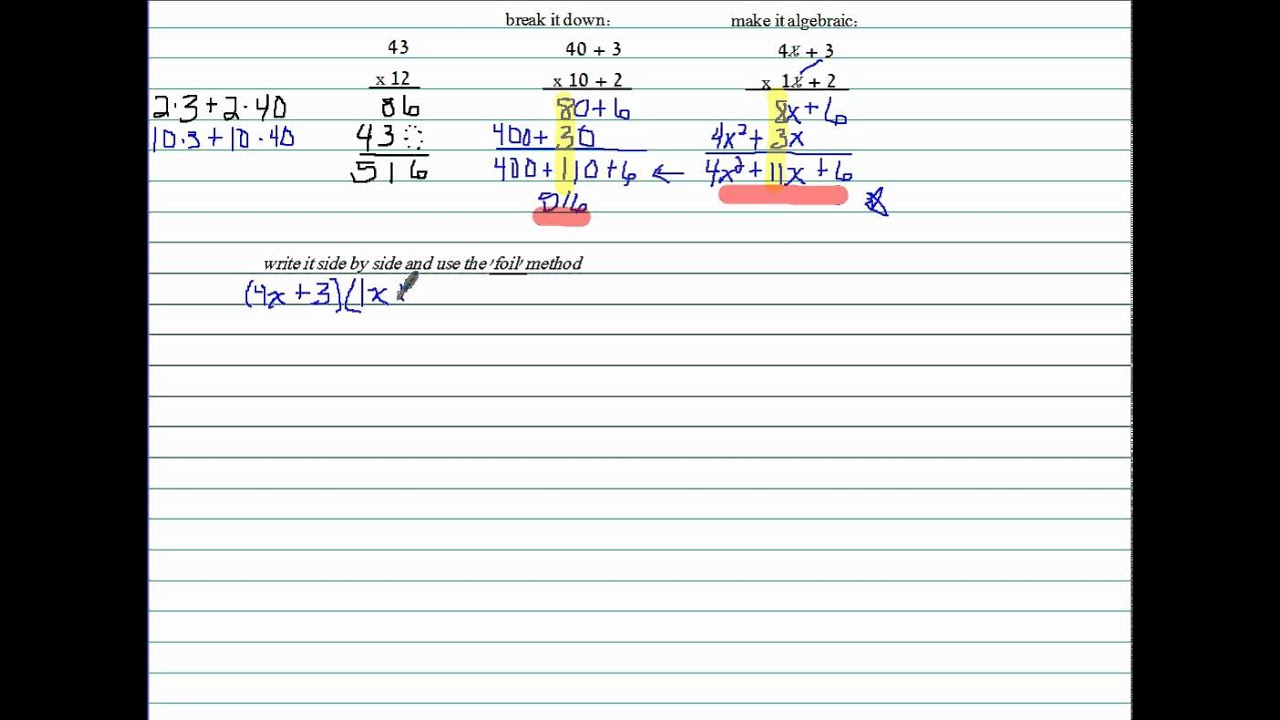 break it down: make it algebraic:
43 40 + 3 4x + 3
x 12 x 10 + 2 x 1x + 2
2·3+2·40 86 80+6 8x+6
10·3+10·40 43 400+30 4x²+3x
516 400+110+6 ← 4x²+11x+6
516
write it side by side and use the 'foil' method
(4x+3)(1x